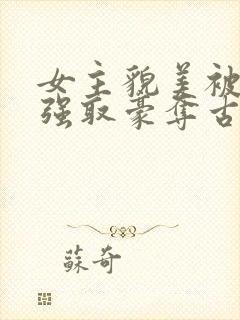 女主貌美被
强取豪夺古
蘇奇